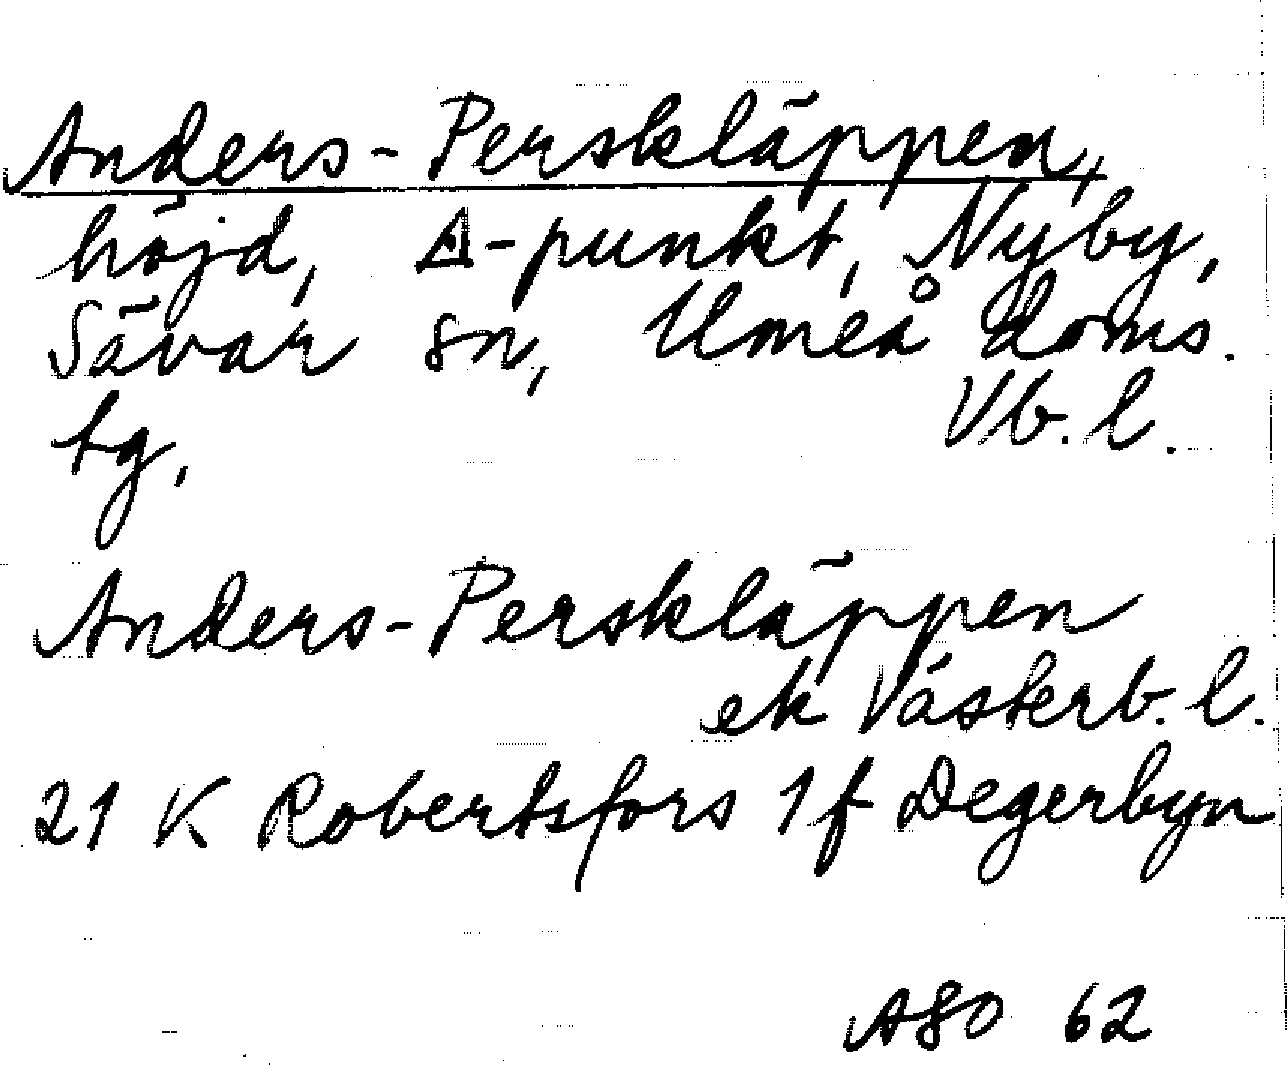 Anders-Perskläppen,
höjd, △-punkt, Nyby,
Sävar sn, Umeå doms.
tg, Vb. l.
Anders-Perskläppen
ek Västerb. l.
21 K Robertsfors 1f Degerbyn
ASO 62